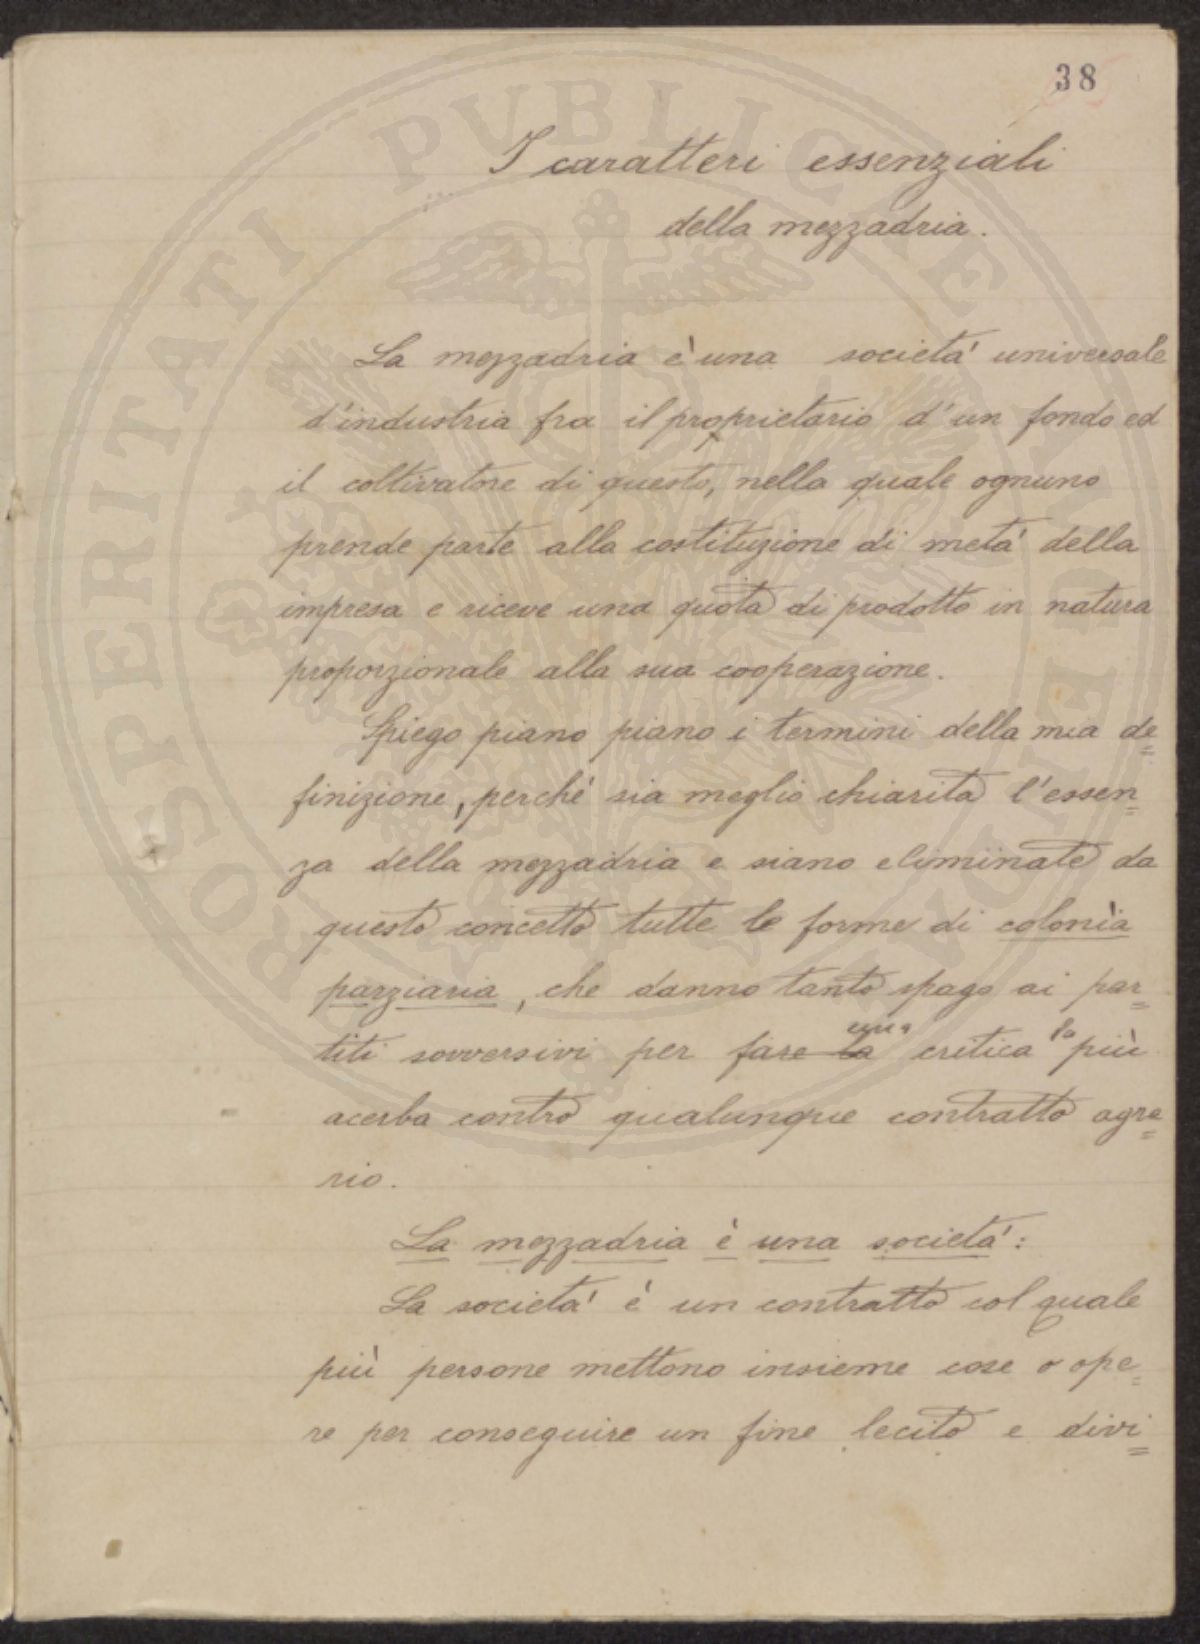 38
I caratteri essenziali
della mezzadria.
La mezzadria è una società universale
d'industria fra il proprietario d'un fondo ed
il coltivatore di questo, nella quale ognuno
prende parte alla costituzione di metà della
impresa e riceve una quota di prodotto in natura
proporzionale alla sua cooperazione.
Spiego piano piano i termini della mia de=
finizione, perché sia meglio chiarita l'essen=
za della mezzadria e siano eliminate da
questo concetto tutte le forme di colonìa
parziaria, che danno tanto spago ai par=
titi sovversivi per fare la una critica la più
acerba contro qualunque contratto agra=
rio.
La mezzadria è una società:
La società è un contratto col quale
più persone mettono insieme cose o ope=
re per conseguire un fine lecito e divi=
PROSPERITATI PUBLICAE